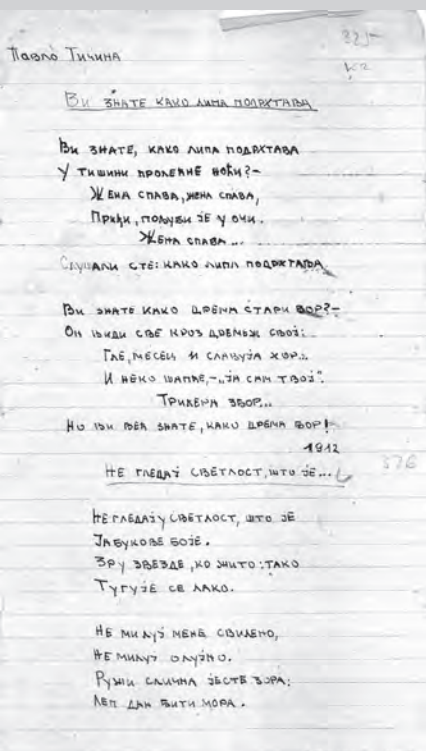 325
к2
Павло Тичина
Ви знате како липа подрхтава
Ви знате, како липа подрхтава
У тишини пролећне ноћи?-
Жена спава, жена спава,
Приђи, пољуби је у очи.
Жена спава...
Слушали сте: како липа подрхтава
Ви знате како дрема стари бор?-
Он види све кроз дремеж свој:
Гле, месец и славуја хор...
И неко шапће,-„ја сам твој".
Трилења збор...
Но ви већ знате, како дрема бор!
1912
Не гледај светлост, што је...
376
Не гледај у светлост, што је
Јабукове боје.
Зру звезде, ко жито: тако
Тугује се лако.
Не милуј мене свилено,
Не милуј олујно.
Ружи слична јесте зора:
Леп дан бити мора.